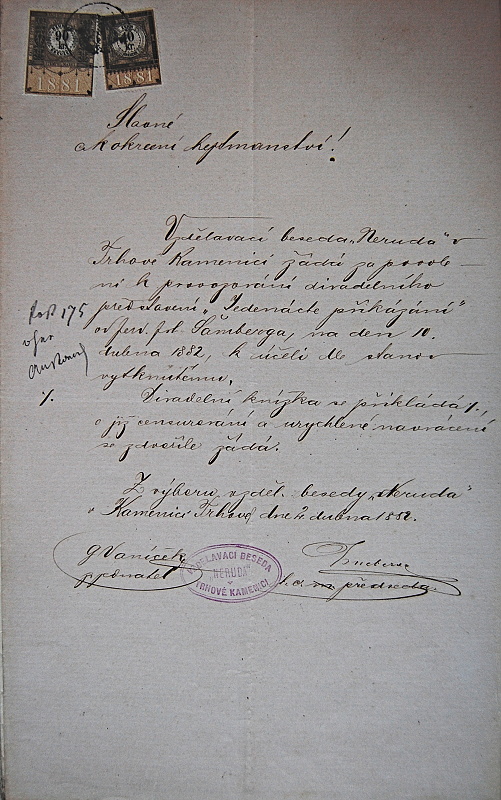 kr.
kr.
1881
1881
Slavné
c.k okresní hejtmanství!
Vzdělavací beseda „Neruda" v
Trhové Kamenici žádá za povole
ní k provozování divadelního
představení „Jedenácte přikázání"
od ferd. fr. Šamberga, na den 10.
dubna 1882, k účeli dle stanov
vytknutému.
175
%. Divadelní knížka se přikládá %,
o její censurování a urychlené navrácení
se zdvořile žádá.
Z výboru vzděl. besedy „Neruda"
v Kamenici Trhové dne 2. dubna 1882.
Vaníček
VZDĚLAVACI BESEDA
"NERUDA"
V
TRHOVÉ KAMENICI
předseda.